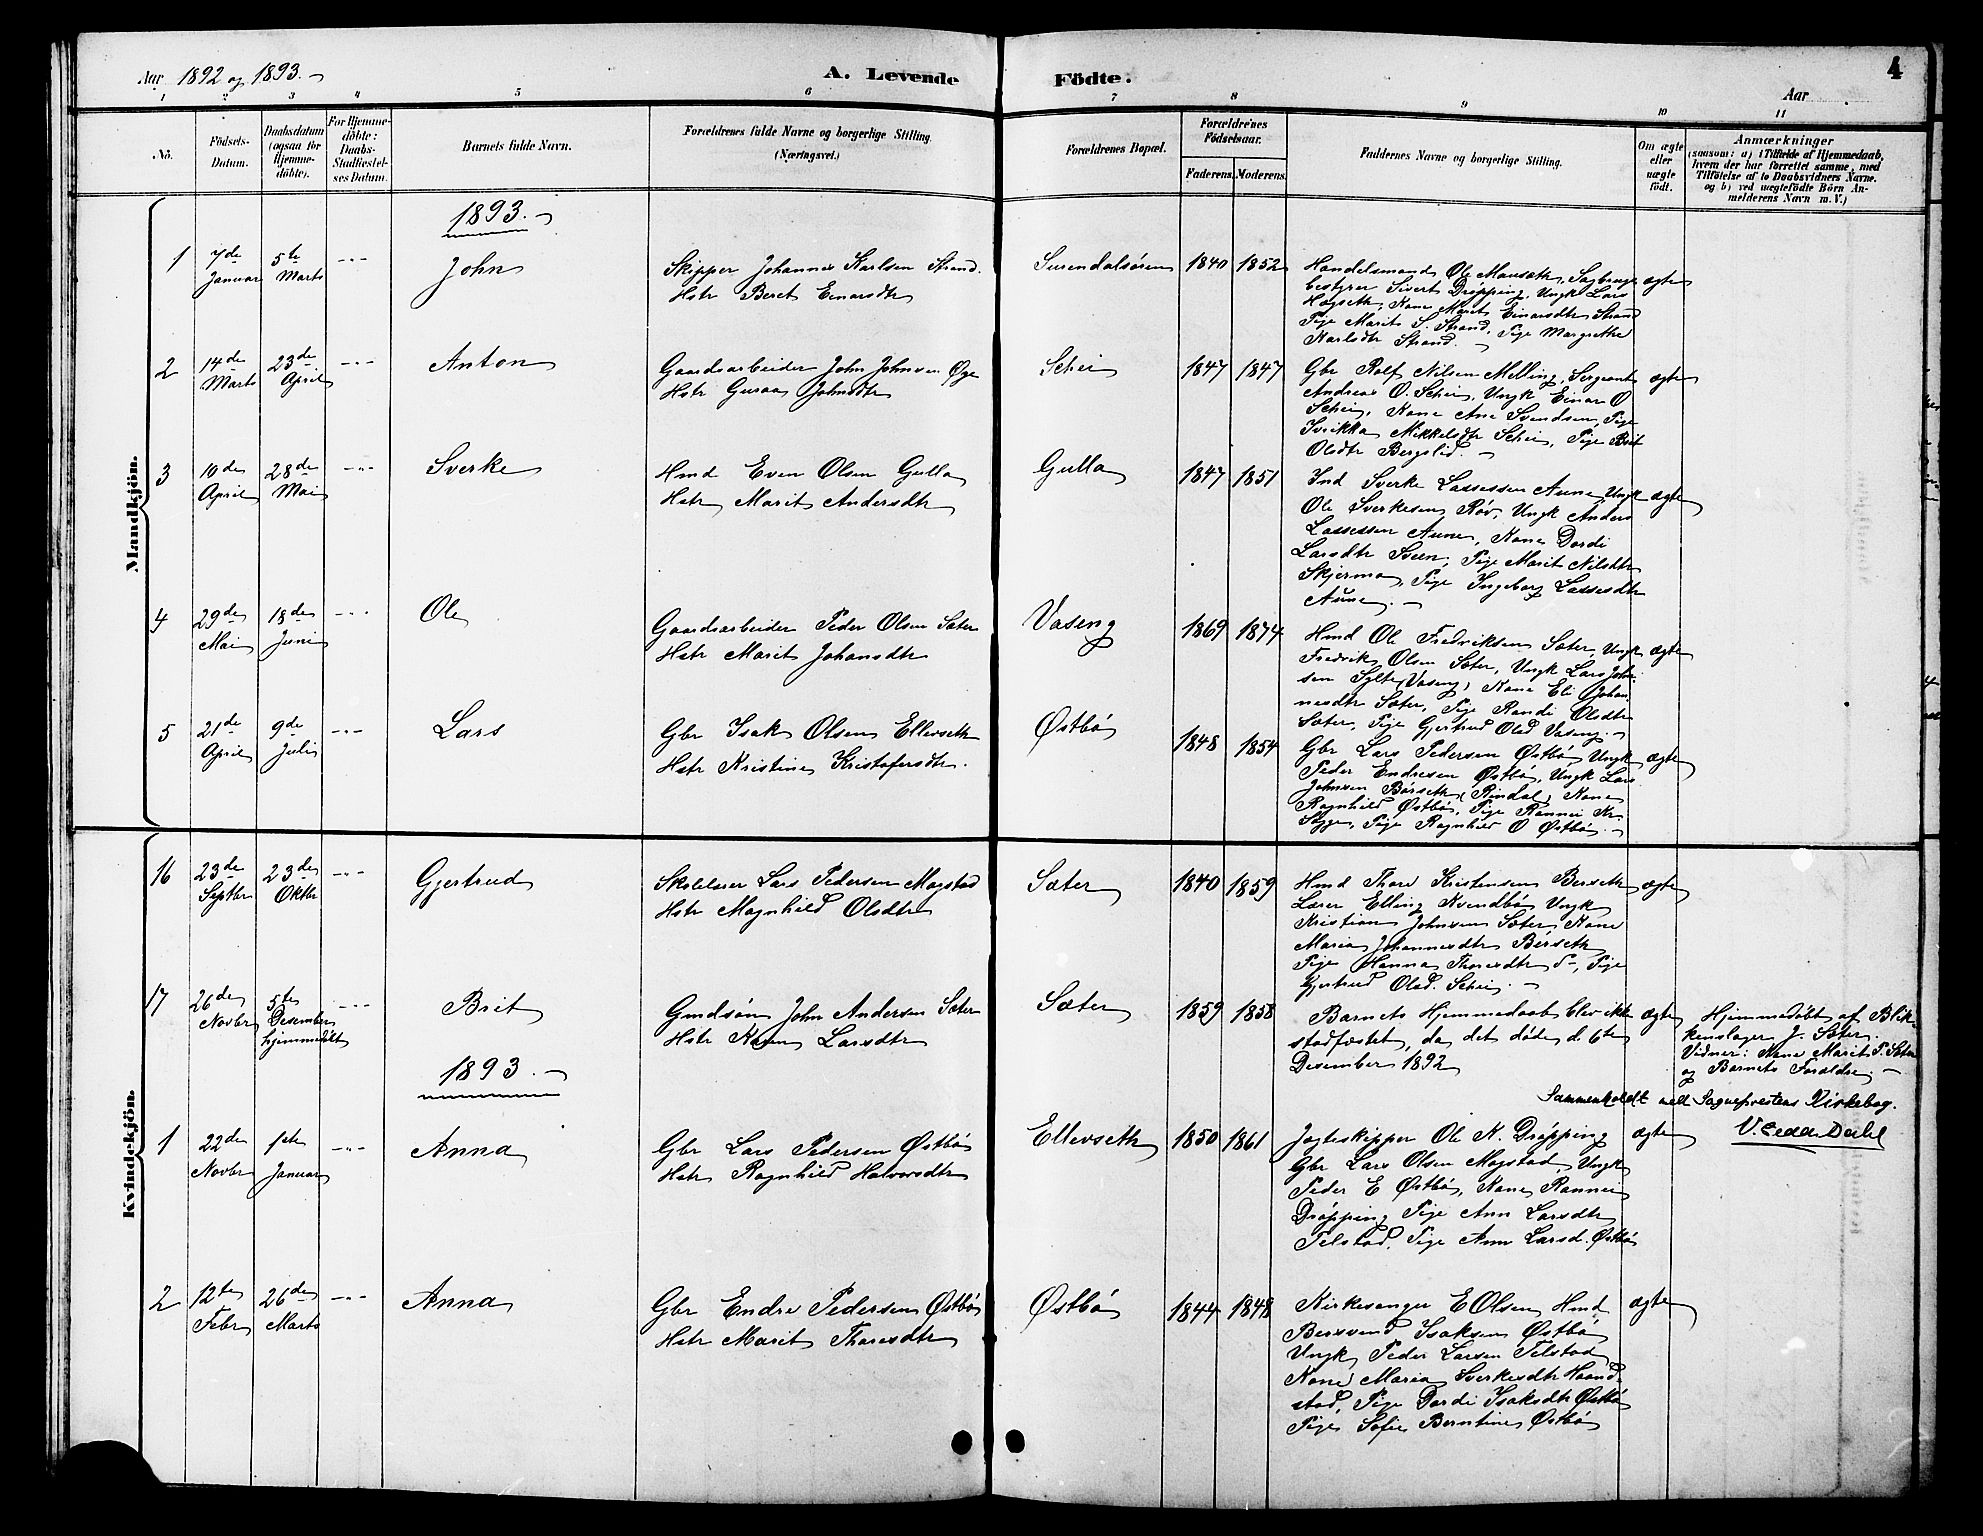 Aar 1892 og 1893.
A. Levende
Födte.
4
Aar
1 2 3 4 5 6 7 8 9 10 11
No.
Födsels-
Datum.
Daabsdatum
(ogsaa for
Hjemme-
döbte).
For Hjemme-
döbte:
Daabs-
Stadfæstel-
ses Datum.
Barnets fulde Navn.
Forældrenes fulde Navne og borgerlige Stilling.
(Næringsvei.)
Forældrenes Bopæl.
Forældrenes
Födselsaar.
Faderens. Moderens.
Faddernes Navne og borgerlige Stilling.
Om ægte
eller
uægte
födt.
Anmærkninger
(saasom: a) i Tilfælde af Hjemmedaab,
hvem der har forrettet samme, med
Tilföielse af to Daabsvidners Navne.
og b) ved uægtefödte Börn An-
melderens Navn m. V.)
Mandkjön.
1893.
1
7de
Januar
5te
Marts
John
Skipper Johannes Karlsen Strand.
Hstr Beret Einarsdtr
Surendalsören
1840 1852
Handelsmand Ole Mausæth, Sagbrugs
bestyrer Sivert Dröpping, Ungk Lars
Högseth, Kone Marit Einarsdtr Strand
Pige Marit S. Strand, Pige Margrethe
Karlsdtr Strand.
ægte
2
14de
Marts
23de
April
Anton
Gaardsarbeider John Johnsen Øye
Hstr Guraa Johnsdtr
Schei
1847 1847
Gbr Rolf Nilsen Melling, Sergeant
Andreas O. Schei, Ungk Einar O
Schei, Kone Ane Svendsen, Pige
Sverikka Mikkelsdtr Schei, Pige Brit
Olsdtr Bergslid.
ægte
3
10de
April
28de
Mai
Sverke
Hmd Even Olsen Gulla
Hstr Marit Andersdtr
Gulla
1847 1851
Ind Sverke Lassessen Aune, Ungk
Ole Sverkesen Röv, Ungk Anders
Lassessen Aune, Kone Dordi
Larsdtr Sveen, Pige Marit Nilsdtr
Skjermo, Pige Ingeborg Lassesdtr
Aune.
ægte
4
29de
Mai
18de
Juni
Ole
Gaardsarbeider Peder Olsen Sæter
Hstr Marit Johansdtr
Vaseng
1869 1874
Hmd Ole Fredriksen Sæter, Ungk
Fredrik Olsen Sæter, Ungk Lars Joh-
sen Sylte (Vaseng) Kone Eli Johan
nesdtr Sæter, Pige Randi Olsdtr
Sæter, Pige Gjertrud Olsd Vaseng.
ægte
5
21de
April
9de
Juli
Lars
Gbr Isak Olsen Ellevseth
Hstr Kristine Kristofersdtr.
Østbö
1848 1854
Gbr Lars Pedersen Østbö, Ungk
Peder Endresen Østbö, Ungk Lars
Johnsen Börseth (Rindal) Kone
Ragnhild Østbö, Pige Rannei Kr
Sogge, Pige Ragnhild O Østbö.
ægte
Kvindekjön.
16
23de
Septbr
23de
Oktbr
Gjertrud
Skolelærer Lars Pedersen Mogstad
Hstr Magnhild Olsdtr
Sæter
1840 1859
Hmd Thore Kristensen Berseth
Lærer Elling Kvendbö Ungk
Kristian Johnsen Sæter, Kone
Maria Johannesdtr Berseth
Pige Hanna Thoresdtr S-, Pige
Gjertrud Olsd. Schei.
ægte
17
26de
Novbr
5te
Desember
hjemmedöbt
Brit
Gmdsön John Andersen Sæter
Hstr Karen Larsdtr
Sæter
1859 1858
Barnets Hjemmedaab blev ikke
stadfæstet, da det döde d. 6te
Desember 1892
ægte
Hjemmedöbt af Blik-
kenslager J. Sæter.
Vidner: Kone Marit P. Sæter
og Barnets Forældre.
1893.
Sammenholdt med Sognepræstens Kirkebog.
1
22de
Novbr
1ste
Januar
Anna
Gbr Lars Pedersen Østbö
Hstr Ragnhild Halvorsdtr
Ellevseth
1850 1861
Jagteskipper Ole K. Dröpping
Gbr Lars Olsen Mogstad, Ungk
Peder E Østbö, Kone Rannei
Dröpping Pige Ann Larsdtr
Telstad, Pige Ann Larsd. Østbö
ægte
2
12te
Febr
26de
Marts
Anna
Gbr Endre Pedersen Østbö
Hstr Marit Thoresdtr
Østbö
1844 1848
Kirkesanger E Olsen, Hmd
Bersvend Isaksen Østbö
Ungk Peder Larsen Telstad
Kone Maria Sverkesdtr Haand-
stad, Pige Dordi Isaksdtr Østbö
Pige Sofie Berntine Østbö
ægte